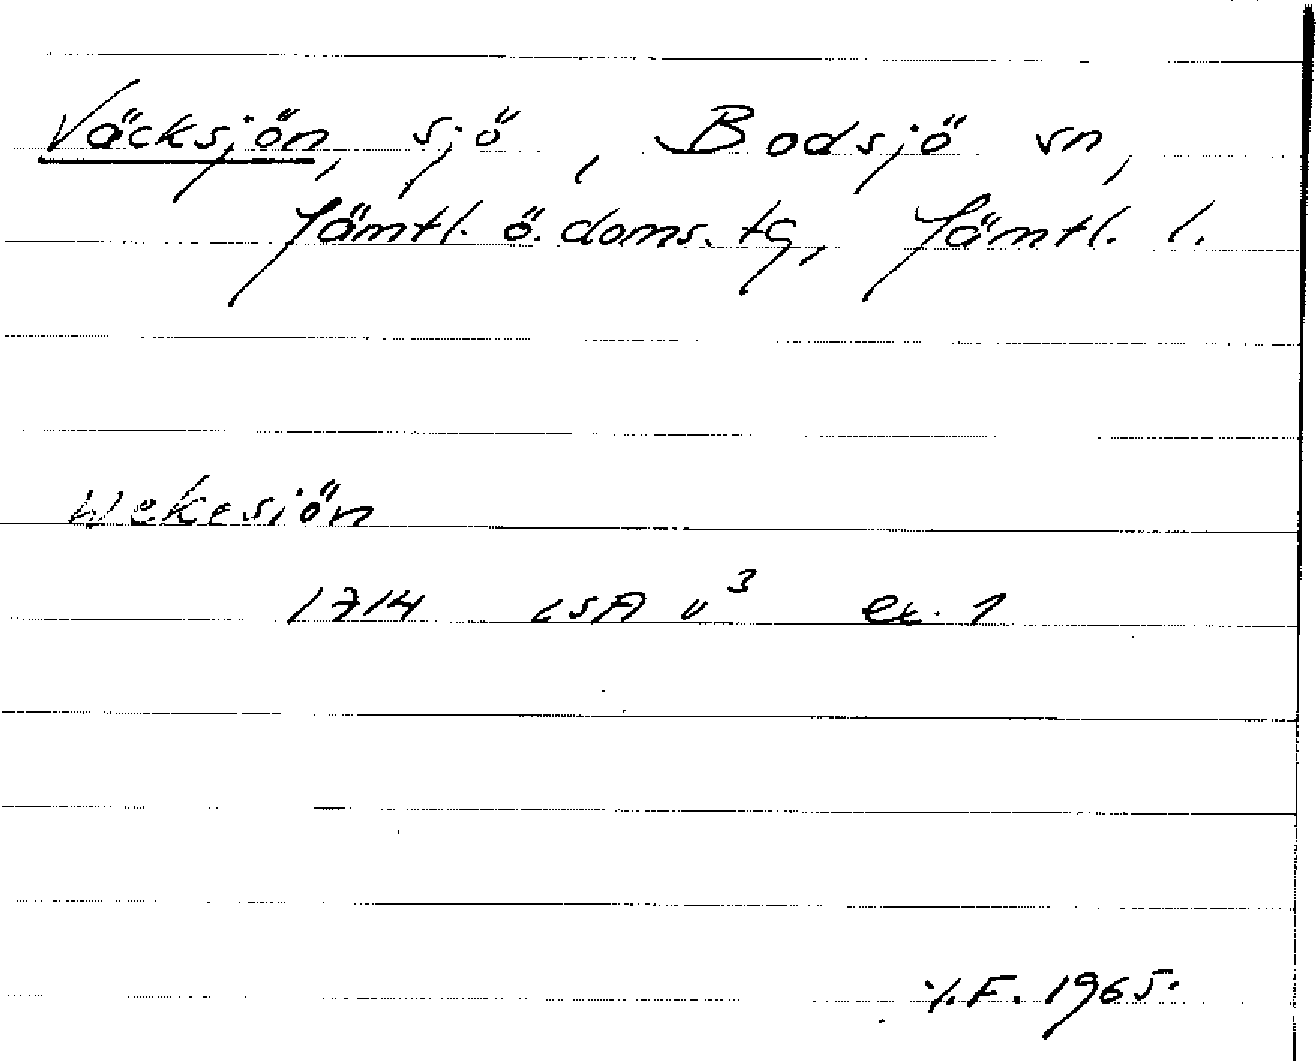 Väcksjön, sjö, Bodsjö sn,
Jämtl. ö. doms. tg, Jämtl. l.
Wekesiön
1714 LSA u³ ex. 1
F. 1965.